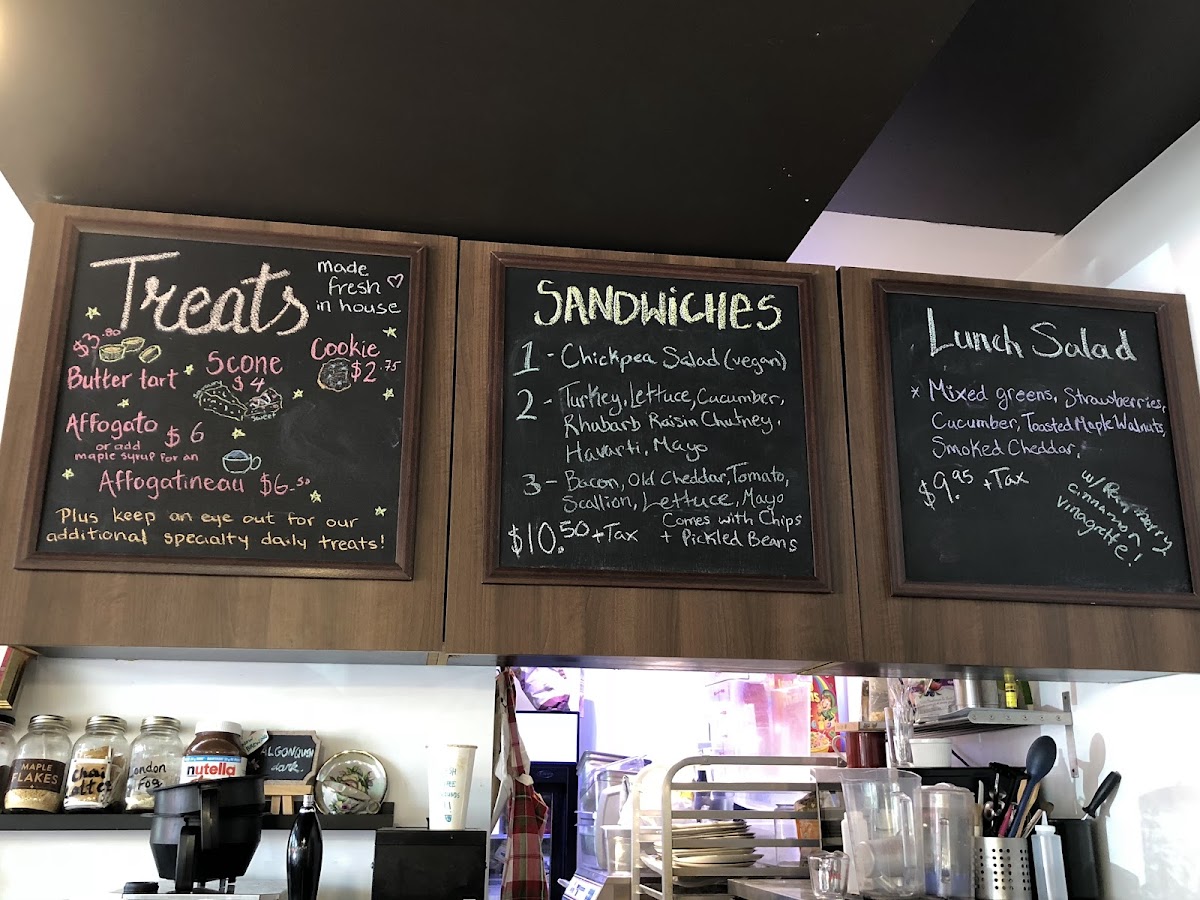 Treats
made
fresh
in house
$3.80
Butter tart
Scone
$4
Cookie
$2.75
Affogato $6
or add
maple syrup for an
Affogatineau $6.50
Plus keep an eye out for our
additional specialty daily treats!
SANDWICHES
1 - Chickpea Salad (vegan)
2 - Turkey, Lettuce, Cucumber,
Rhubarb Raisin Chutney,
Havarti, Mayo
3 - Bacon, Old Cheddar, Tomato,
Scallion, Lettuce, Mayo
Comes with Chips
$10.50 + Tax + Pickled Beans
Lunch Salad
* Mixed greens, Strawberries,
Cucumber, Toasted Maple Walnuts,
Smoked Cheddar.
$9.95 + Tax
w/ Raspberry
cinnamon
vinagrette!
MAPLE
FLAKES
Chai
London
Fog
nutella
ALGONQUIN
dark.